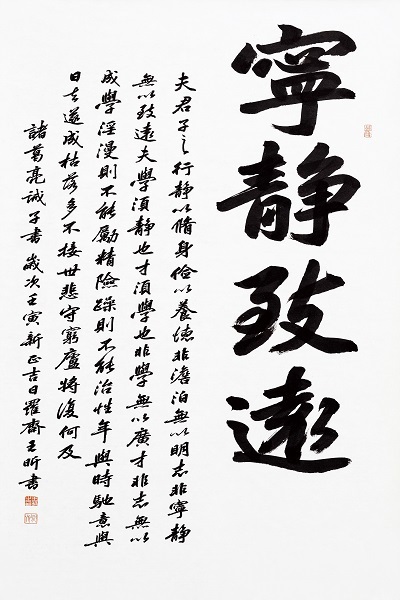 寧静致遠
夫君子之行静以脩身儉以養德非澹泊無以明志非寧静
無以致遠夫學須静也才須學也非學無以廣才非志無以
成學淫漫則不能勵精險躁則不能治性年與時馳意與
日去遂成枯落多不接世悲守窮廬將復何及
諸葛亮誡子書 歲次壬寅新正吉日齋王昕書